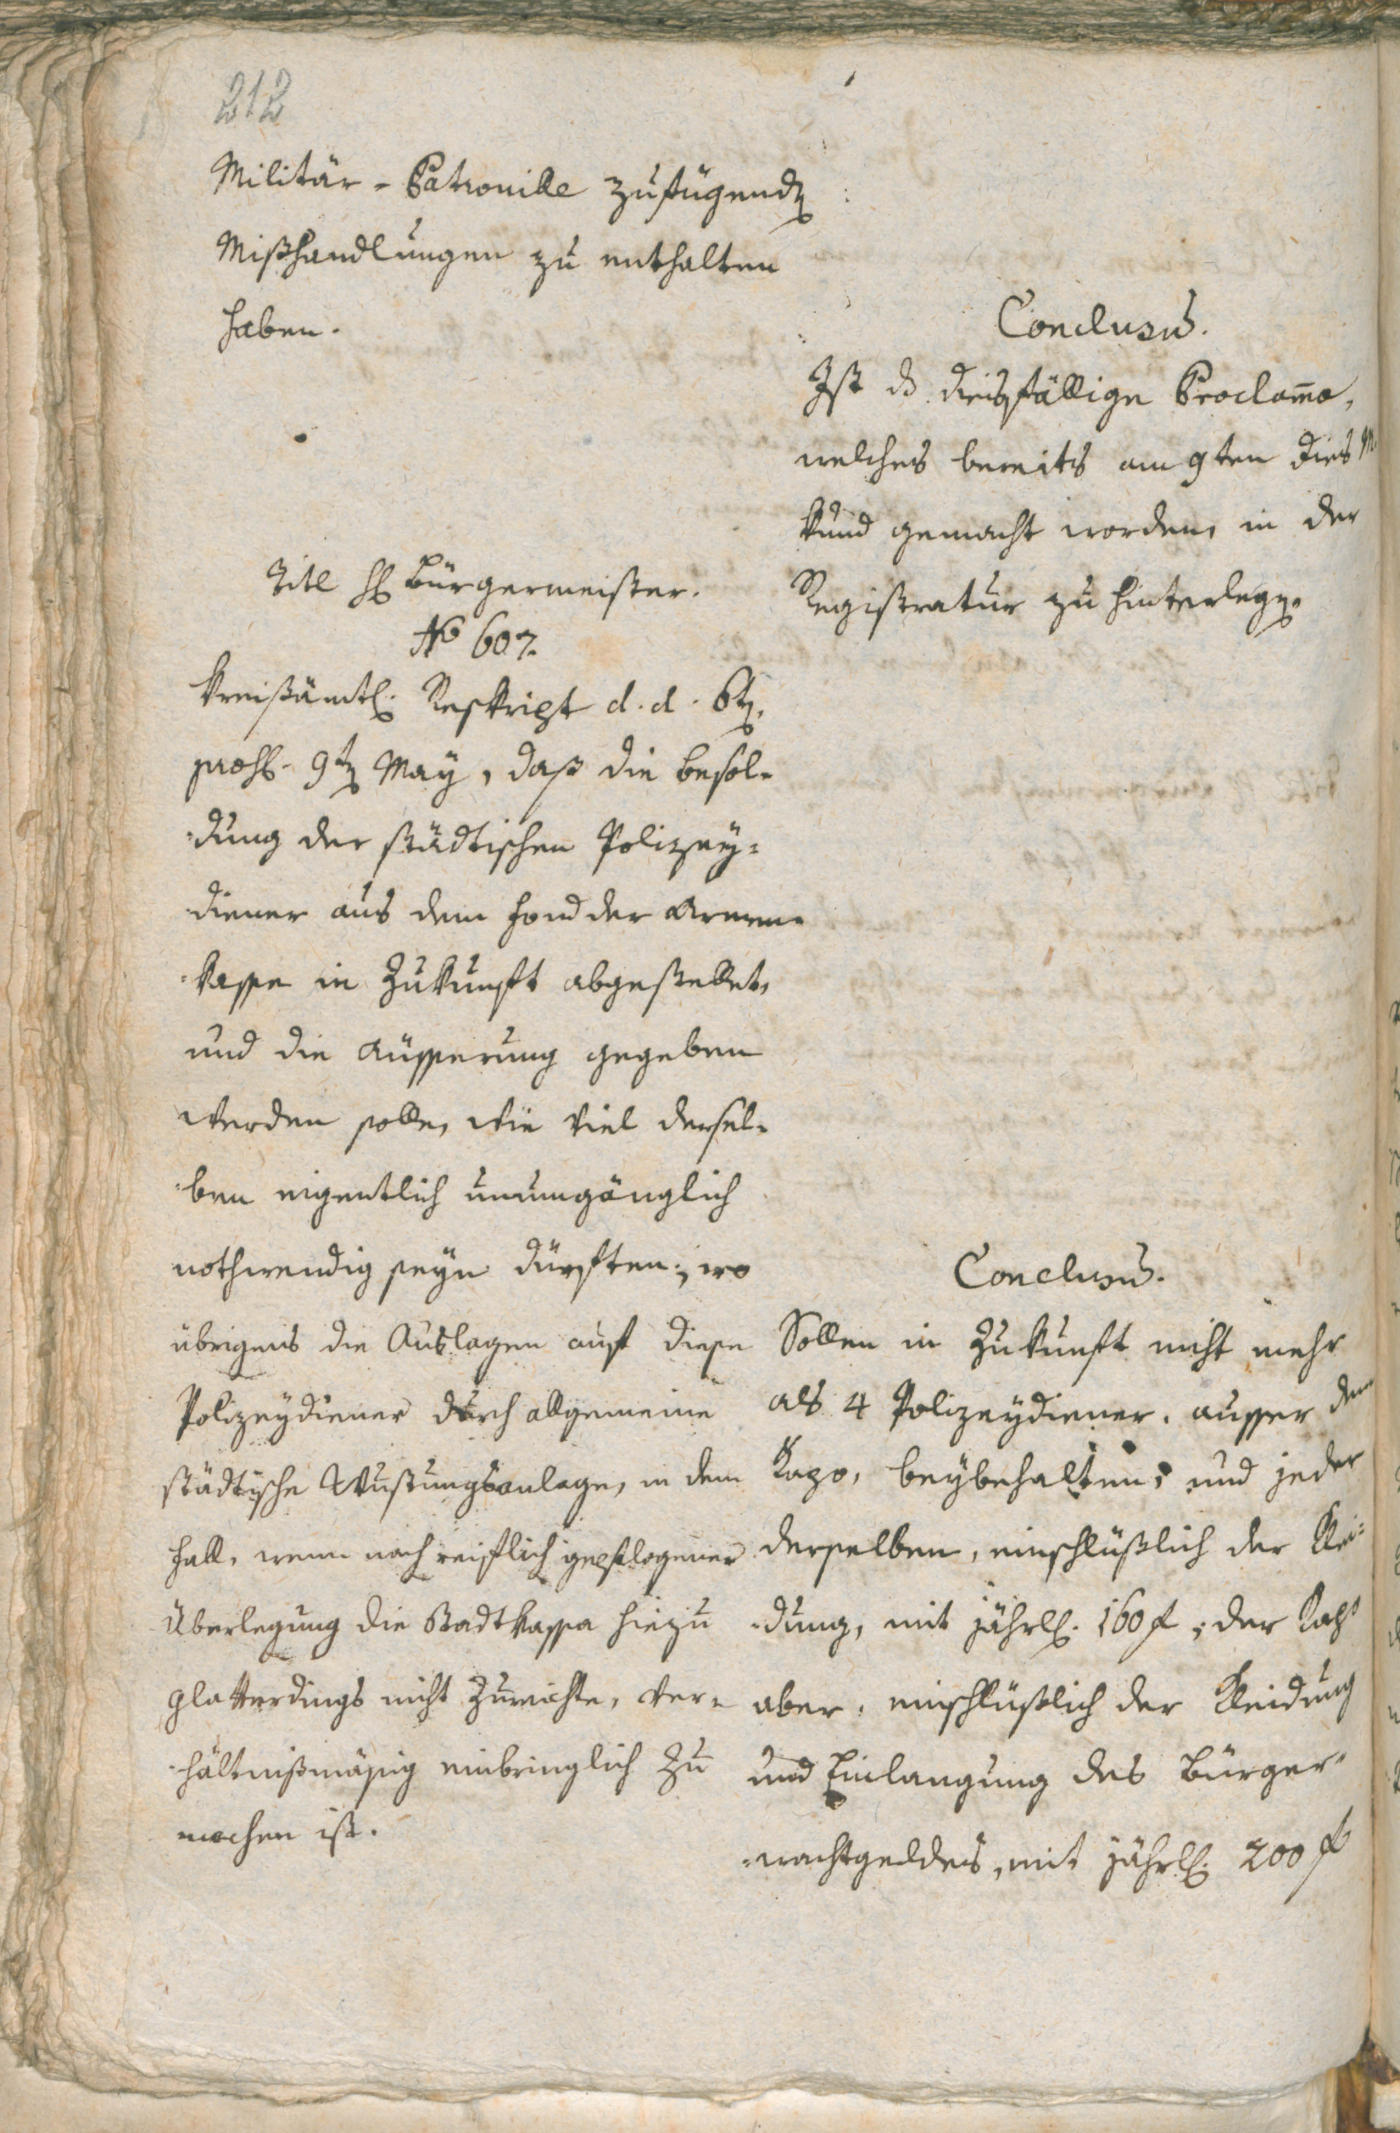 212
Militär-Patrouille zufügenden
Mißhandlungen zu enthalten
haben.
Conclusum.
Ist das diesfällige Proclama,
welches bereits am 9ten dies M.
kund gemacht worden, in der
Registratur zu hinterlegen.
Titl H Bürgermeister.
No 607.
Kreisämtl. Reskript d. d. 6ten
9ten May, daß die Besol-
dung der städtischen Polizey-
diener aus dem Fond der Armen-
kasse in Zukunft abgestellet,
und die Äusserung gegeben
werden solle, wie viel dersel-
ben eigentlich unumgänglich
nothwendig seyn dürften; wo
übrigens die Auslagen auf diese
Polizeydiener durch allgemeine
städtische Wustungsanlage, in dem
Fall, wenn nach reiflich gepflogener
Überlegung die Stadtkassa hiezu
glatterdings nicht zureichte, ver-
hältnißmäßig einbringlich zu
machen ist.
Conclusum.
Sollen in Zukunft nicht mehr
als 4 Polizeydiener, ausser dem
Kapo, beybehalten, und jeder
derselben, einschlüßlich der Klei-
dung, mit jährl. 160 f, der
aber, einschlüßlich der Kleidung
und Einlangung des Bürger-
wachtgeldes, mit jährl. 200 f